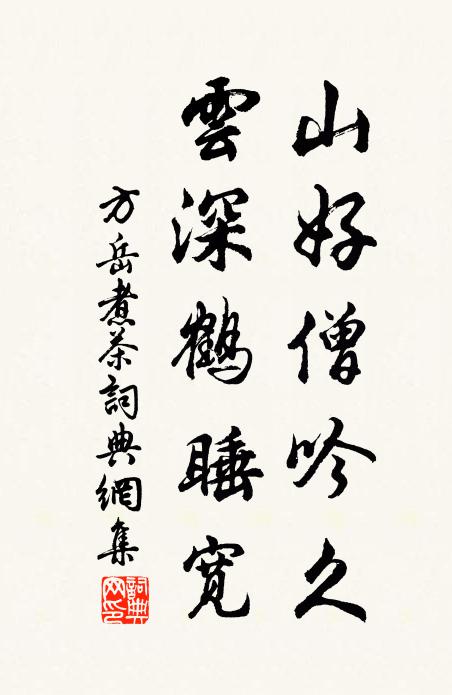 山好僧吟久
雲深鶴睡寬
方岳煮茶詞典網集
詞典網印